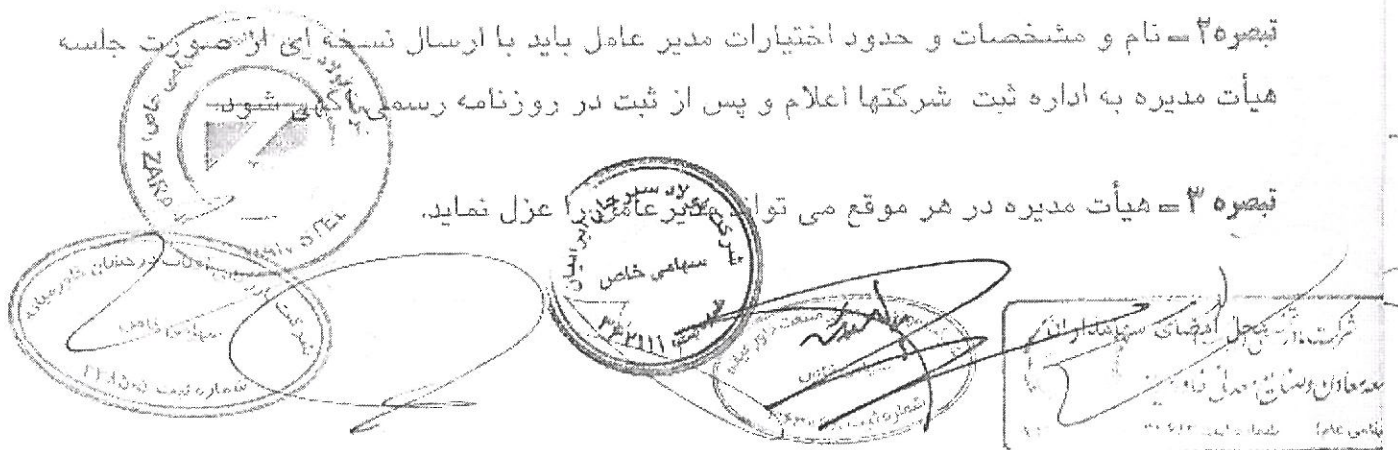 تبصره۲ـ نام و مشخصات و حدود اختیارات مدیر عامل باید با ارسال نسخه ای از صورت جلسه
هیأت مدیره به اداره ثبت شرکتها اعلام و پس از ثبت در روزنامه رسمی آگهی شود.
تبصره ۳ـ هیأت مدیره در هر موقع می تواند مدیرعامل را عزل نماید.
شرکت فولاد سیرجان ایرانیان
سهامی خاص
۳۴۲۱۱۱
سهامی خاص
شماره ثبت
محل امضای سهامداران